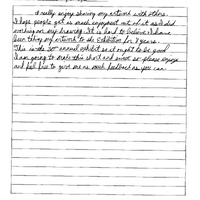 I really enjoy sharing my artwork with others.
I hope people get as much enjoyment out of it as I did
working on my drawings. It is hard to believe I have
been taking my artwork to the Exhibition for 8 years.
This is the 30th annual exhibit so it ought to be good.
I am going to make this short and sweet so please enjoy
and feel free to give me as much feedback as you can.